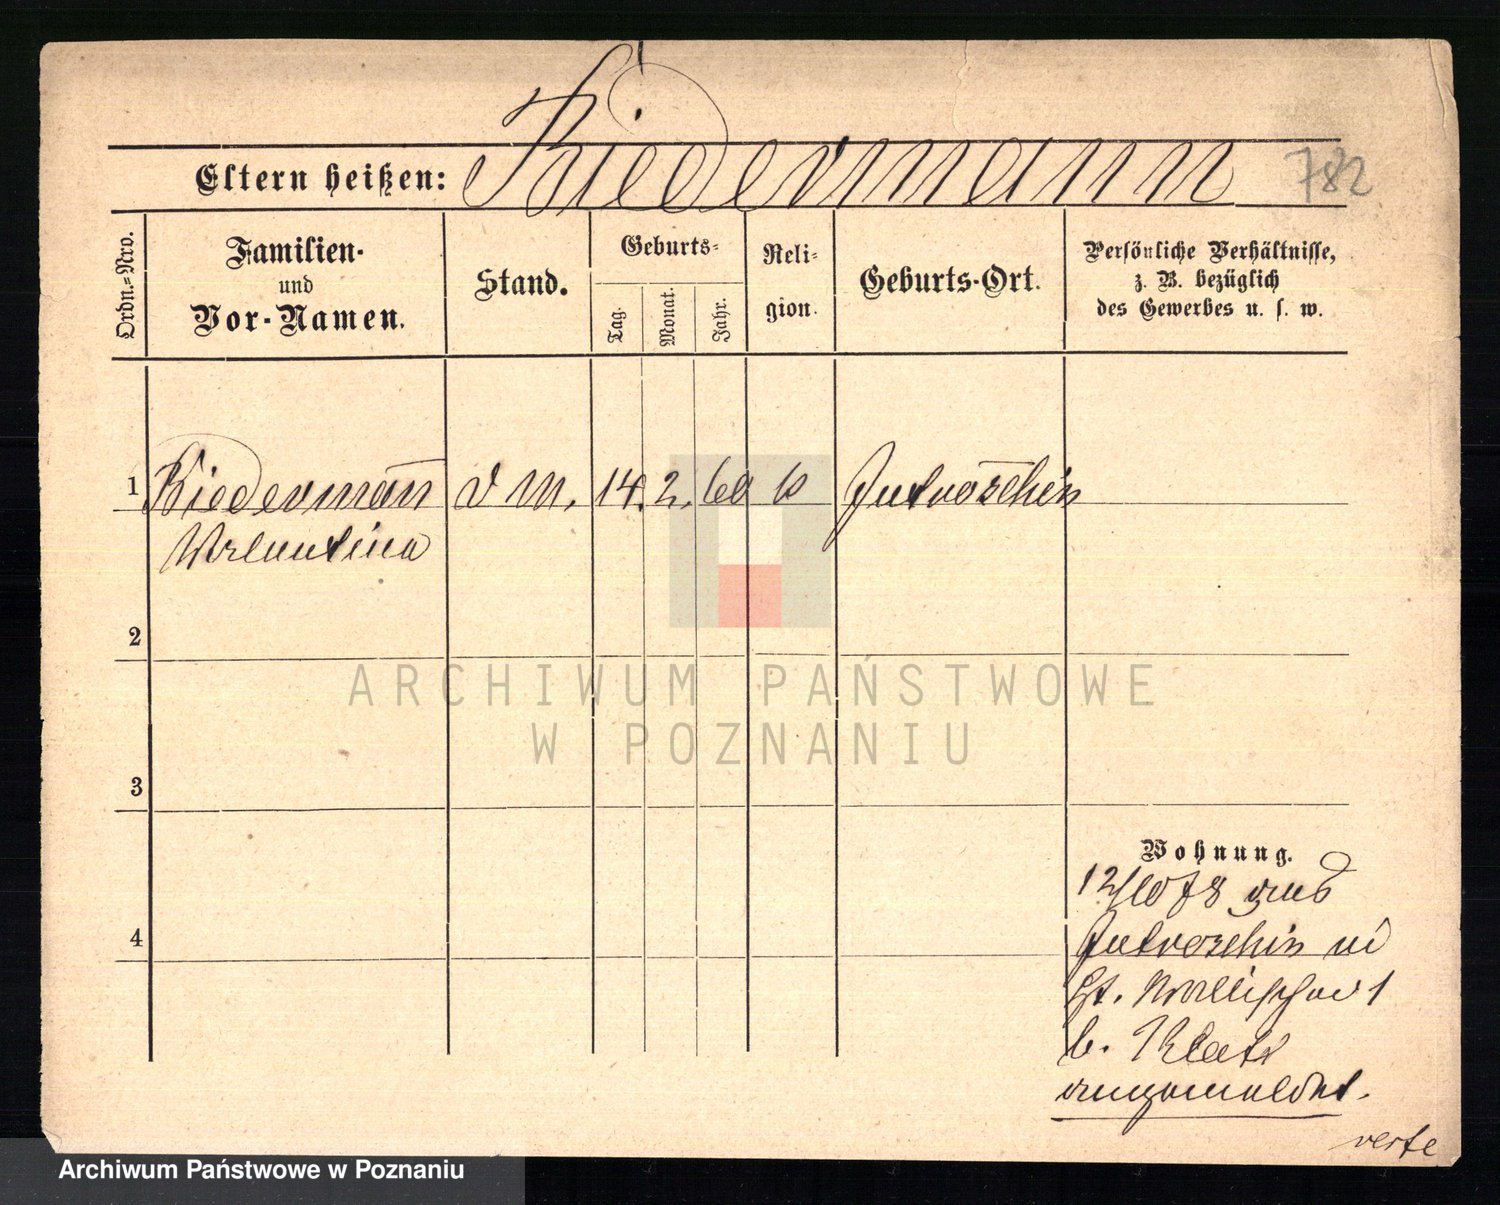 Eltern heißen: Biedermann 782
Ordn.-Nro.
Familien- und Vor-Namen.
Stand.
Geburts-
Tag.
Monat.
Jahr.
Reli-
gion.
Geburts-Ort.
Persönliche Verhältnisse,
z. B. bezüglich
des Gewerbes u. s. w.
1 Biedermann d M. 14. 2. 60 k Jutroschin
Valentina
2
3
4
ARCHIWUM PAŃSTWOWE
W POZNANIU
Wohnung.
12/10 78 aus
Jutroschin
St. 1
b.
angemeldet.
verte
Archiwum Państwowe w Poznaniu